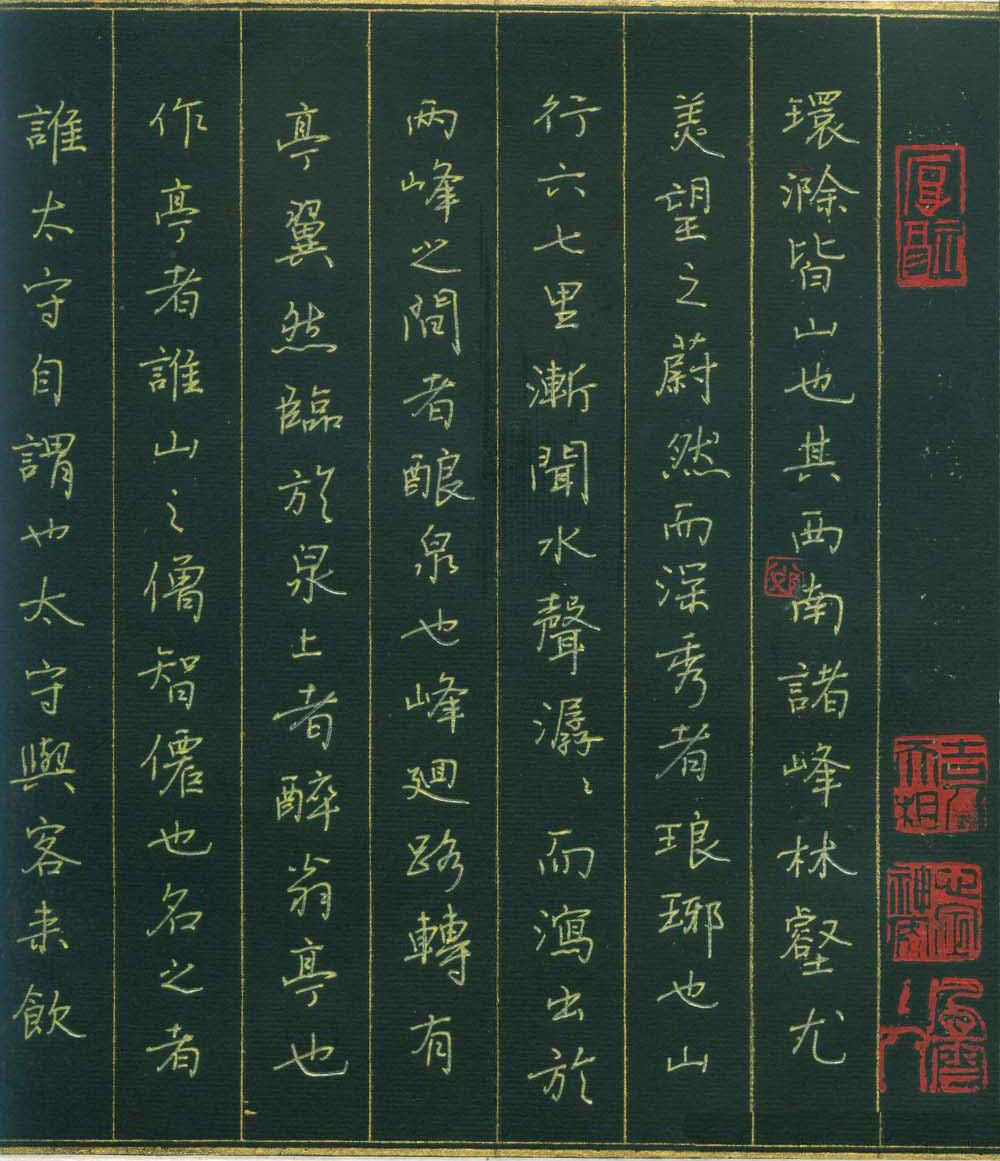 環滁皆山也其西南諸峰林壑尤
美望之蔚然而深秀者琅琊也山
行六七里漸聞水聲潺〻而瀉出於
兩峰之間者酿泉也峰廻路轉有
亭翼然臨於泉上者醉翁亭也
作亭者誰山之僧智僊也名之者
誰太守自謂也太守與客来飲